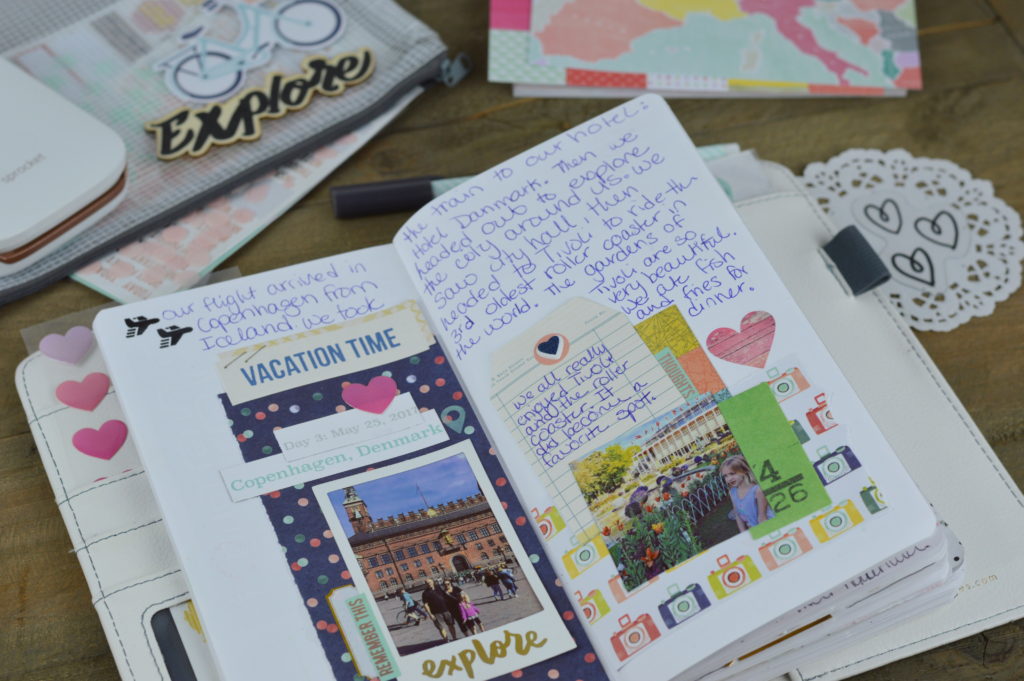 Explore
sprocket
our flight arrived in
Copenhagen from
Iceland. we took
VACATION TIME
Day 3: May 25, 2017
Copenhagen, Denmark
REMEMBER THIS
explore
the train to our hotel:
Hotel Danmark. Then we
headed out to explore
the city around us. we
saw city hall, then
headed to Tivoli to ride the
3rd oldest roller coaster in
the world. The gardens of
Tivoli are so
very beautiful.
we ate fish
and fries for
dinner.
we all really
enjoyed Tivoli
and the roller
coaster. It
did become a
favorite spot.
4
26